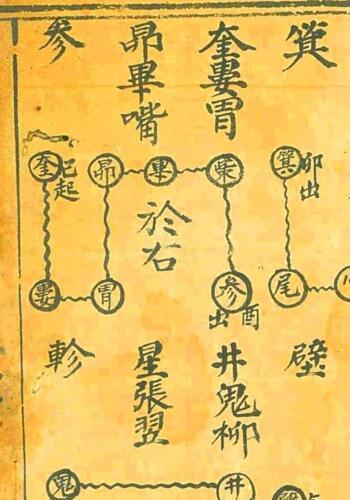 箕
奎婁胃
昴畢嘴
参
箕
卯出
尾
参
酉出
畢
昴
胃
婁
奎
巳起
於右
壁
井鬼柳
星張翌
軫
井
鬼